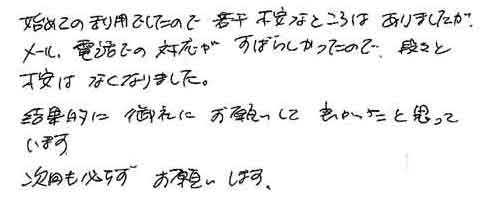 始めての利用でしたので 若干 不安なところは ありましたが、
メール、電話での 対応が すばらしかったので、段々と
不安は なくなりました。
結果的に 御社に お願いして 良かったと思って
います
次回も必ず お願いします、